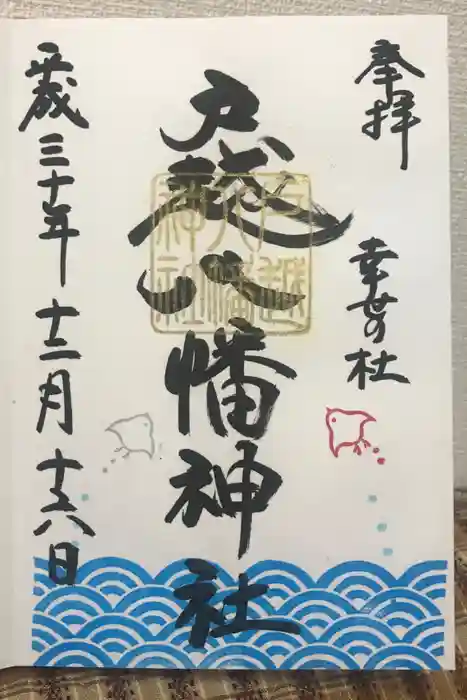 奉拝
幸せの杜
戸越八幡神社
戸越
八幡
神社
平成三十年 十二月 十六日